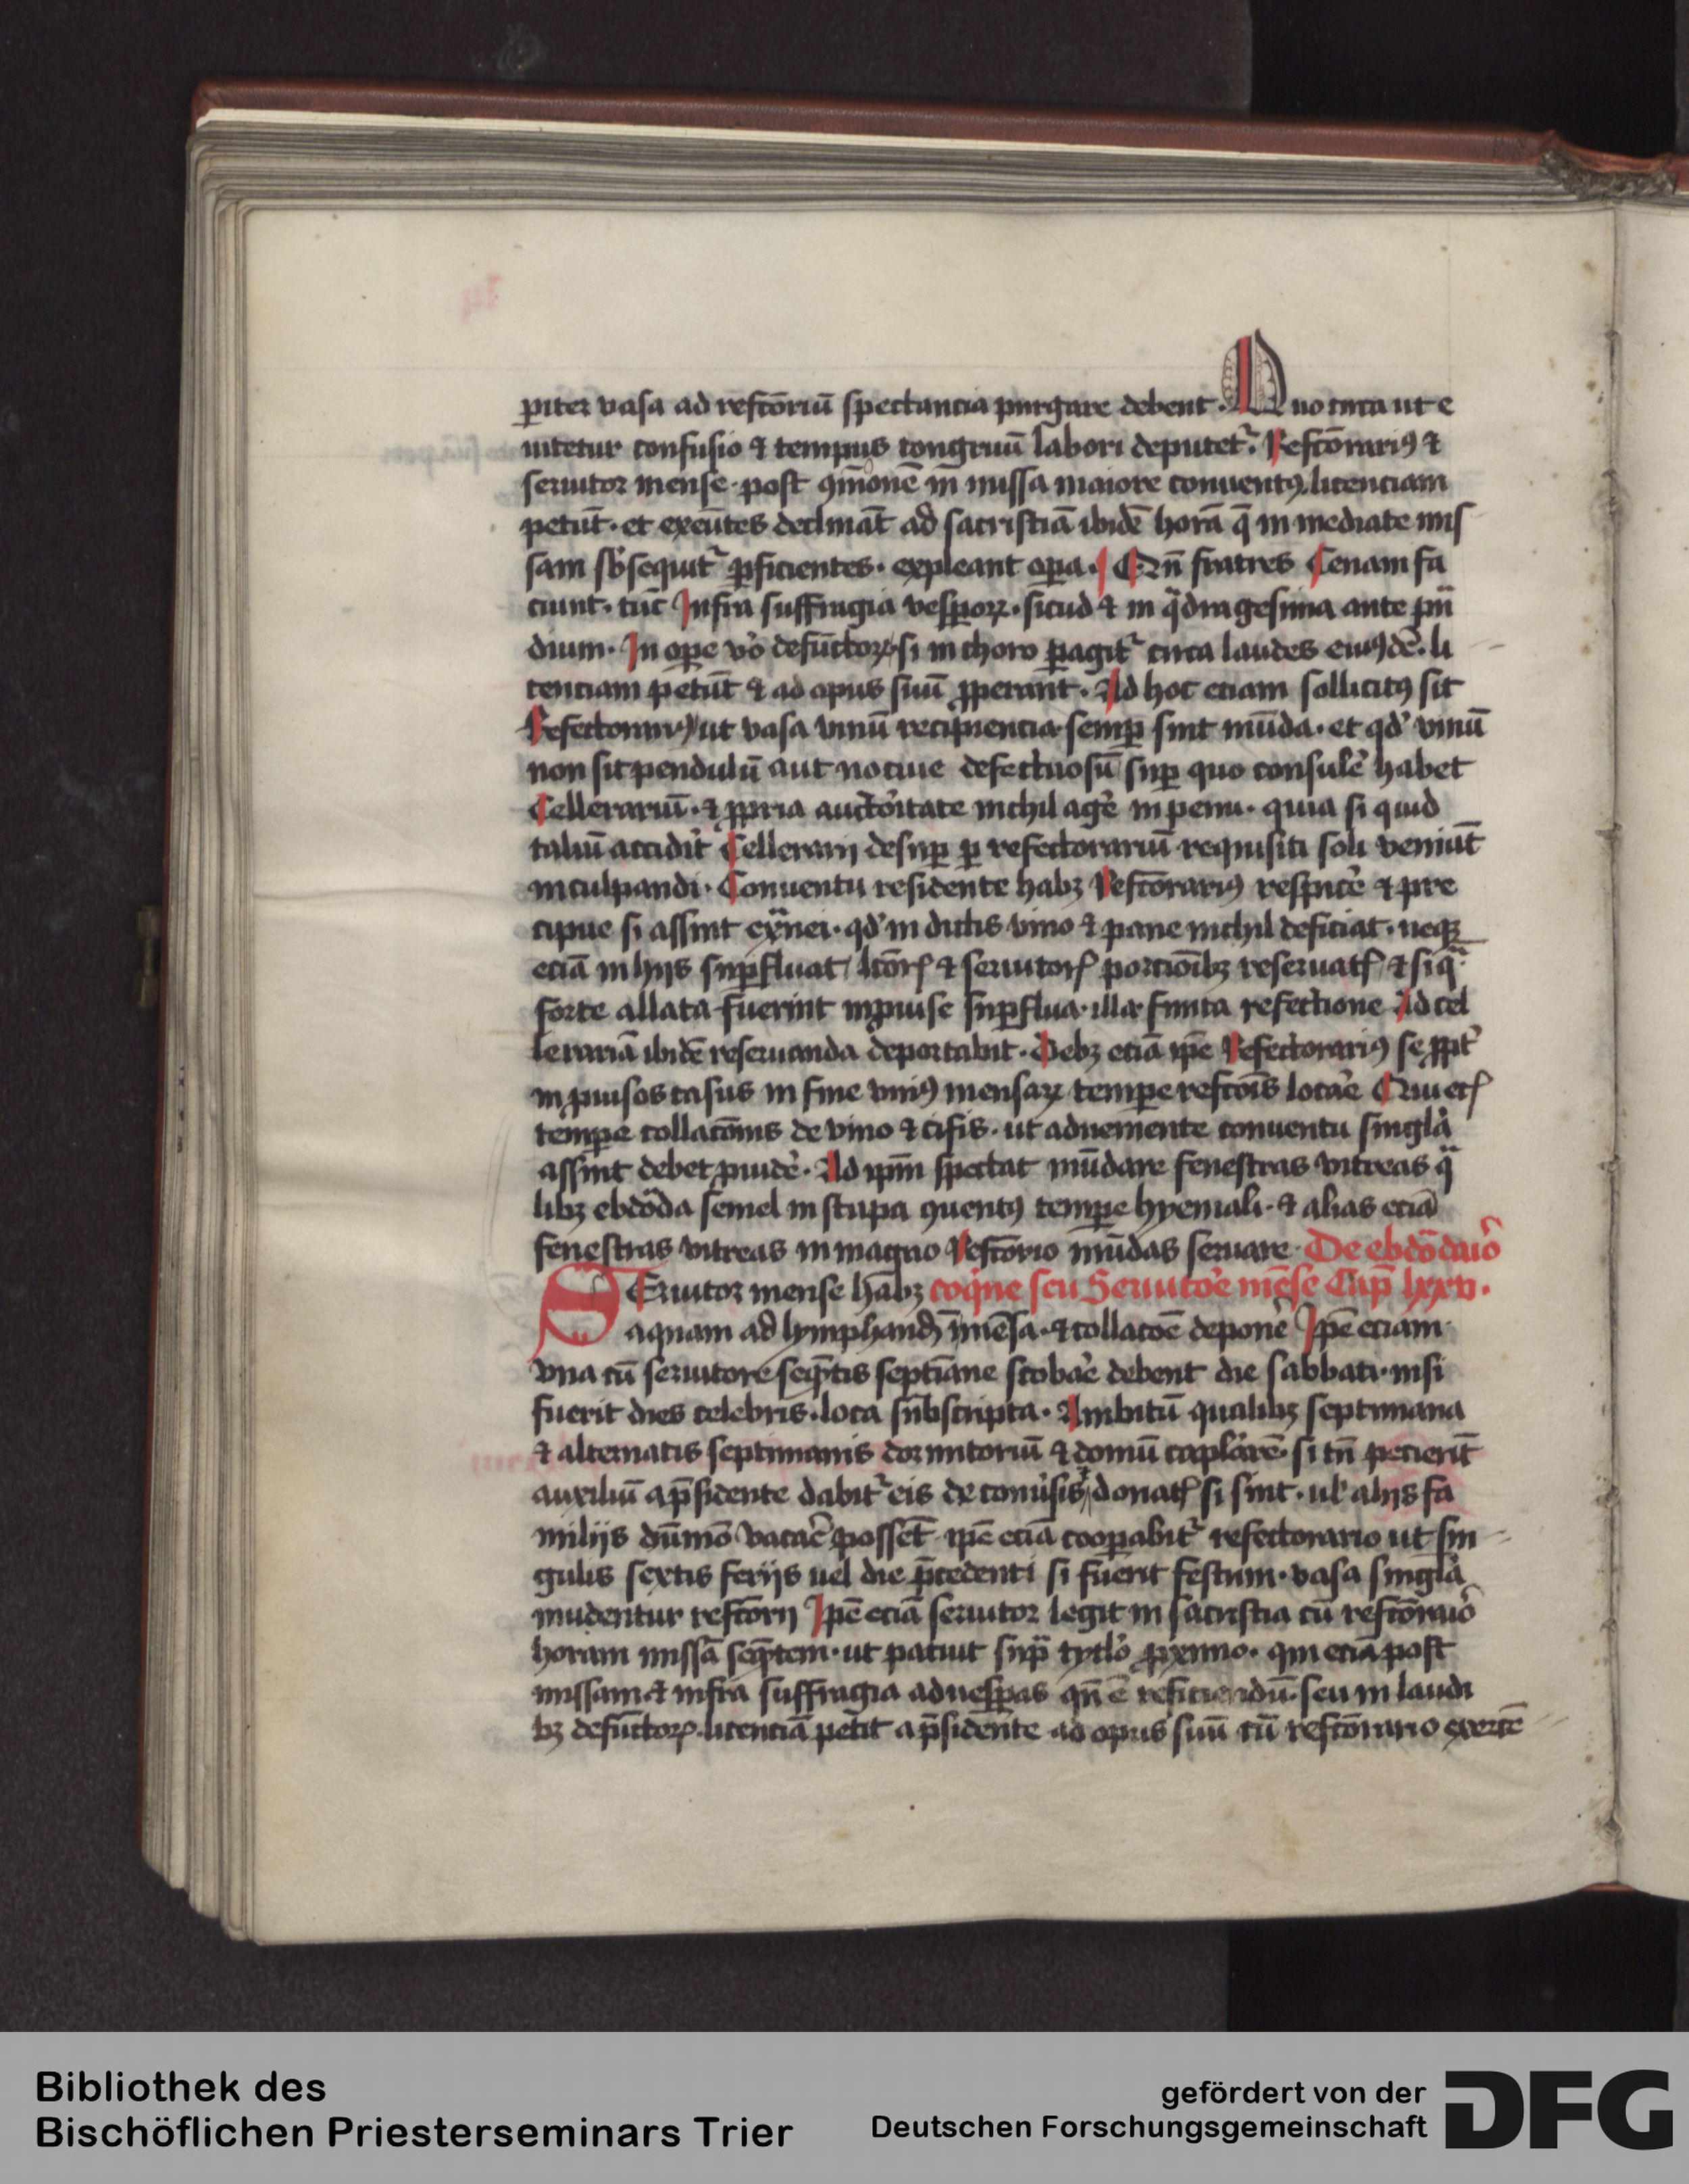 ꝑiter vasa ad refc̄oriū spectancia purgare debent. Quo circa ut e
uitetur confusio ⁊ tempus congruū labori deputetᷣ. Refc̄orariꝯ ⁊
seruitor mense post ꝯmonē in missa maiore conuentꝯ licenciam
petūt. et exeūtes declināt ad sacristiā ibidē horā q̄ inmediate mis
sam sb̓sequitᷣ ꝑficientes. expleant oꝑa. Qn̄ fratres Cenam fa
ciunt. tūc Infra suffragia vesꝑoꝝ. sicud ⁊ in qᷓdragesima ante pn̄
dium. In oꝑe v̓o defūctoꝝ si in choro ꝑagitᷣ circa laudes euꝯdē. li
cenciam petūt ⁊ ad opus suū ꝓperant. Ad hoc eciam sollicitꝯ sit
Refectorariꝯ ut vasa vinū recipiencia semꝑ sint mūda. et qd̓ vinū
non sit pendulū aut nociue defectuosū suꝑ quo consulē habet
Cellerariū. ⁊ ꝓpria auctoritate nichil agē in penu. quia si quid
taliū accidit Cellerarij desuꝑ ꝑ refectorariū requisiti soli veniūt
inculpandi. Conuentu residente habꝫ Refc̄orariꝯ respicē ⁊ pre
cipue si assint exᷓnei. qd̓ in dictis vino ⁊ pane nichil deficiat. neqꝫ
eciā in hijs suꝑfluat lc̄orꝭ ⁊ seruitorꝭ porcioībꝫ reseruatꝭ ⁊ si qᷓ
forte allata fuerint inꝓuise suꝑflua. illa finita refectione Ad cel
lerariā ibidē reseruanda deportabit. Debꝫ eciā ip̄e Refectorariꝯ se ꝓpt̓
inꝓuisos casus in fine vniꝯ mensaꝝ temꝑe refc̄ois locāe Qui etꝭ
temꝑe collacōnis de vino ⁊ cifis. ut adueniente conuentu singl̓a
assint debet ꝓuidē. Ad ip̄m spectat mūdare fenestras vitreas qᷓ
libꝫ ebdōda semel in stupa ꝯuentꝯ temꝑe hyemali. ⁊ alias eciā
fenestras vitreas in magno Refc̄orio mūdas seruare. De ebdōdaio
SEruitor mense habꝫ coq̓ne seu Seruitōe mēse Cap̄ lxxv.
aquam ad lymphandꝭ in mēsa. ⁊ collacōe deponē Ip̄e eciam
vna cū seruitore seq̄ntis septīane scobāe debent die sabbati. nisi
fuerit dies celebris. loca subscripta. Ambitū qualibꝫ septimana
⁊ alternatis septimanis dormitoriū ⁊ domū capl̓arē. si tn̄ pecierit
auxiliū a p̄sidente dabitᷣ eis de conūsis donatꝭ si sint. ul̓ alijs fa
miliis dūmō vacāe possēt ip̄e eciā cooꝑabitᷣ refectorario ut sin
gulis sextis ferijs uel die p̄cedenti si fuerit festum. vasa singl̓a
mūdentur refc̄orij Ip̄e eciā seruitor legit in sacristia cū refc̄oraio
horam missā seq̄ntem. ut patuit supᷓ tytl̓o ꝓximo. qui eciā post
missam ⁊ infra suffragia ad vesꝑas qn̄ ē reficiendū. seu in laudi
bꝫ defūctoꝝ. licenciā petit a p̄sidente ad opus suū cū refc̄orario exercē
Bibliothek des
Bischöflichen Priesterseminars Trier
gefördert von der
Deutschen Forschungsgemeinschaft
DFG